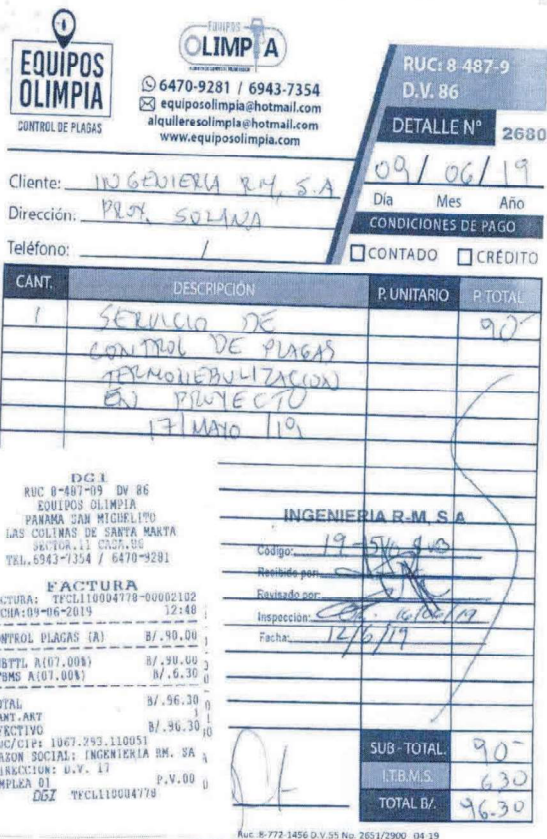 EQUIPOS
OLIMPIA
CONTROL DE PLAGAS
EQUIPOS
OLIMPIA
6470-9281 / 6943-7354
equiposolimpia@hotmail.com
alquileresolimpia@hotmail.com
www.equiposolimpia.com
RUC: 8-487-9
D.V. 86
DETALLE Nº 2680
09/ 06/ 19
Día Mes Año
CONDICIONES DE PAGO
CONTADO CRÉDITO
Cliente: INGENIERIA RM, S.A
Dirección: PROY. SOLANA
Teléfono: /
CANT. DESCRIPCIÓN P. UNITARIO P. TOTAL
1 SERVICIO DE 90-
CONTROL DE PLAGAS
TERMONEBULIZACION
EN PROYECTO
17 MAYO 19
DGI
RUC 8-487-09 DV 86
EQUIPOS OLIMPIA
PANAMA SAN MIGUELITO
LAS COLINAS DE SANTA MARTA
SECTOR.11 CASA.
TEL.6943-7354 / 6470-9281
FACTURA
CTURA: TFCL110004778-00002102
CHA:09-06-2019 12:48
ONTROL PLAGAS (A) B/.90.00
BTTL A(07.00%) B/.90.00
TBMS A(07.00%) B/.6.30
OTAL B/.96.30
ANT.ART 1
FECTIVO B/.96.30
UC/CIP: 1067.293.110051
AZON SOCIAL: INGENIERIA RM. SA
IRECCION: D.V. 17
MPLEA 01 P.V.00
DGI TFCL110004778
INGENIERIA R-M, S.A
Código: 19-
Recibido por:
Revisado por:
Inspección: 16/06/19
Fecha: 12/6/19
SUB - TOTAL. 90-
I.T.B.M.S. 630
TOTAL B/. 96.30
Ruc. 8-772-1456 D.V.55 No. 2651/2900 04-19